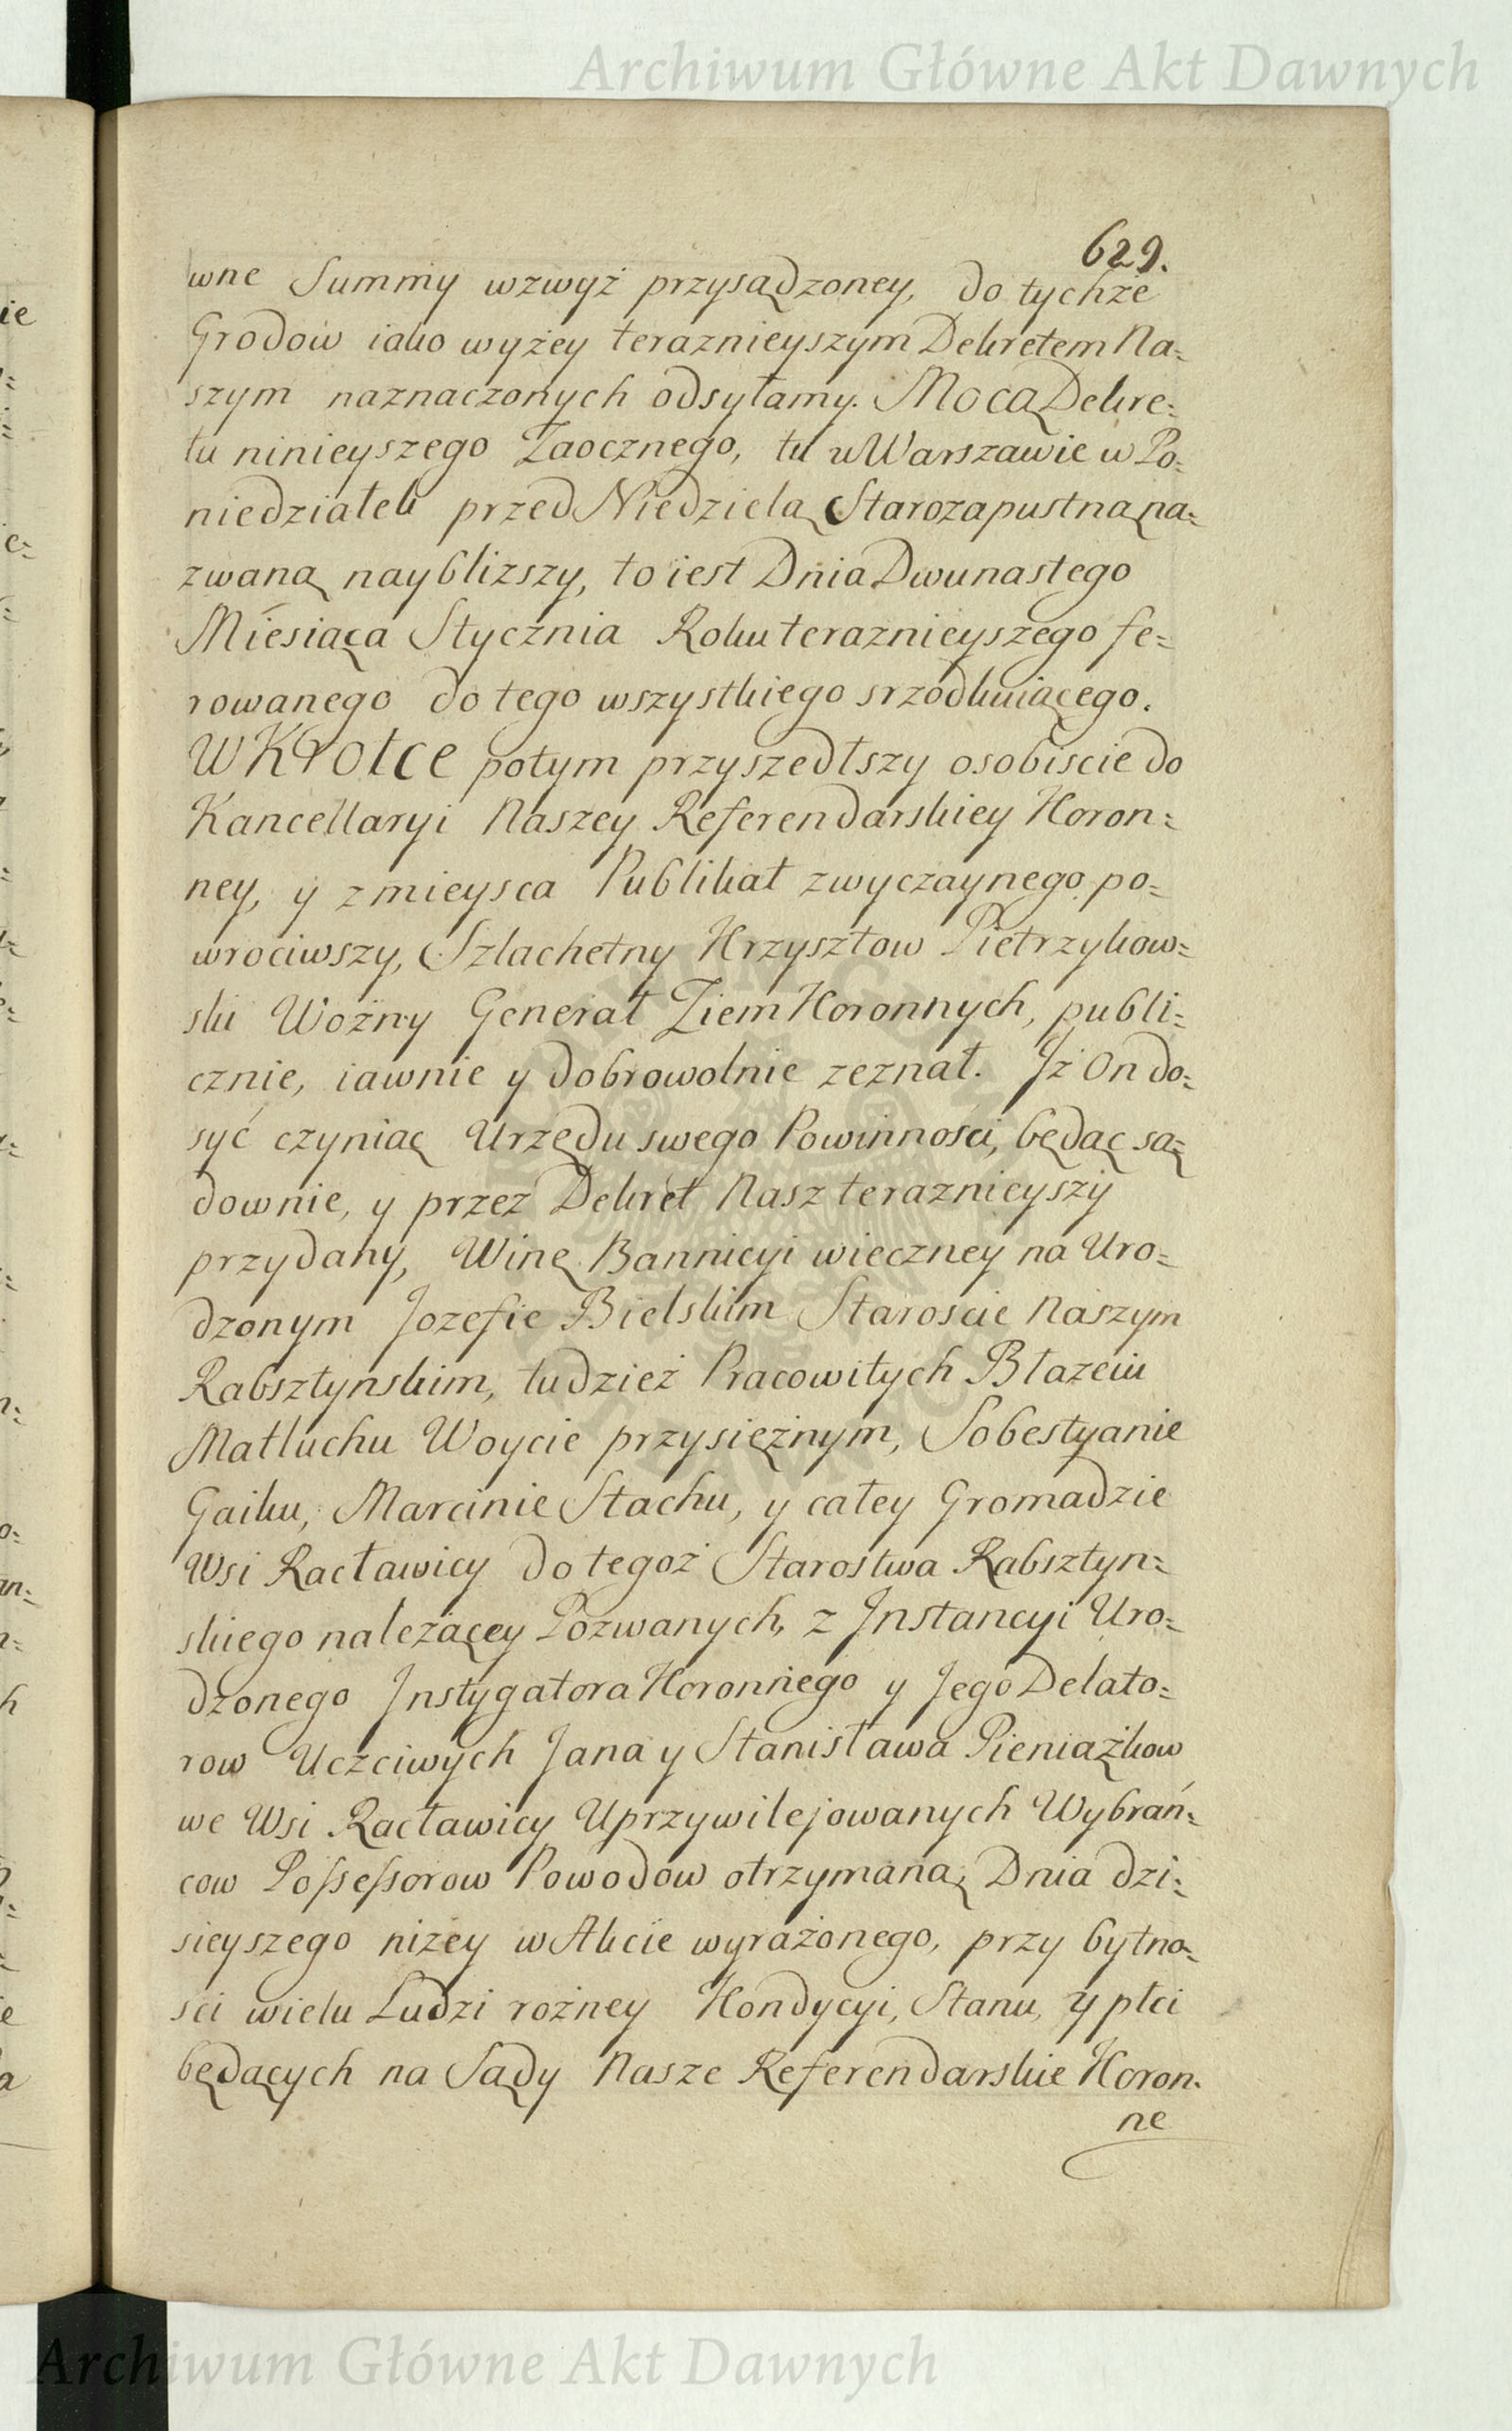 Archiwum Główne Akt Dawnych
629.
wne Summy wzwyż przysądzoney, do tychże
Grodow iako wyżey teraznieyszym Dekretem Na=
szym naznaczonych odsyłamy. Mocą Dekre=
tu ninieyszego Zaocznego, tu w Warszawie w Po=
niedziałek przed Niedzielą Starozapustną na=
zwaną nayblizszy, to iest Dnia Dwunastego
Miesiąca Stycznia Roku teraznieyszego fe=
rowanego do tego wszystkiego srzodkuiącego.
W Krotce potym przyszedłszy osobiscie do
Kancellaryi Naszey Referendarskiey Koron=
ney, y z mieysca Publikat zwyczaynego po=
wrociwszy, Szlachetny Krzysztow Pietrzykow=
ski Wozny Generał Ziem Koronnych, publi=
cznie, iawnie y dobrowolnie zeznał. Iż On do=
syć czyniąc Urzędu swego Powinnosci, będąc są=
downie, y przez Dekret Nasz teraznieyszy
przydany, Winę Bannicyi wieczney na Uro=
dzonym Jozefie Bielskim Staroscie Naszym
Rabsztynskim, tudzież Pracowitych Błazeiu
Matłuchu Woycie przysiężnym, Sobestyanie
Gaiku, Marcinie Stachu, y całey Gromadzie
Wsi Racławicy do tegoż Starostwa Rabsztyn=
skiego należącey Pozwanych, z Instancyi Uro=
dzonego Instygatora Koronnego y Jego Delato=
row Uczciwych Jana y Stanisława Pieniążkow
we Wsi Racławicy Uprzywilejowanych Wybrań=
cow Possessorow Powodow otrzymaną, Dnia dzi=
sieyszego niżey w Akcie wyrażonego, przy bytno=
sci wielu Ludzi rożney Kondycyi, Stanu, y płci
będących na Sądy Nasze Referendarskie Koron=
ne
Archiwum Główne Akt Dawnych